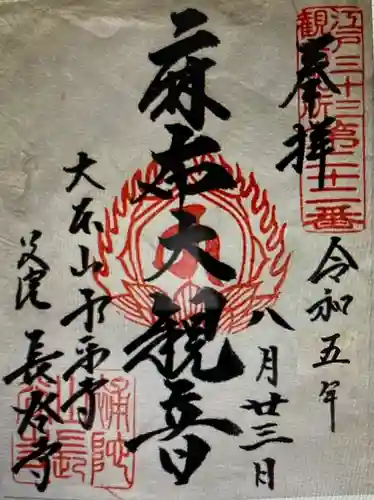 江戸三十三
観音札所
第二十二番
奉拝
令和五年
八月廿三日
麻布大観音
大本山永平寺
別院 長谷寺
補陀
山長
谷寺